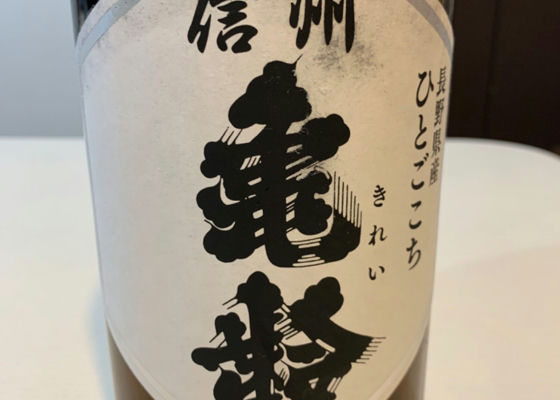 信州
亀齢
きれい
長野県産
ひとごこち